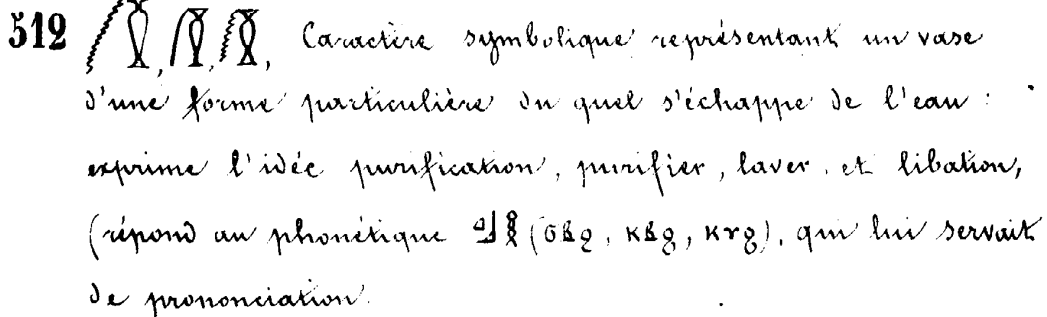 512 Caractère symbolique représentant un vase
d'une forme particulière du quel s'échappe de l'eau :
exprime l'idée purification, purifier, laver, et libation,
(répond au phonétique (ϭⲃϩ, ⲕⲃϩ, ⲕⲩϩ), qui lui servait
de prononciation.